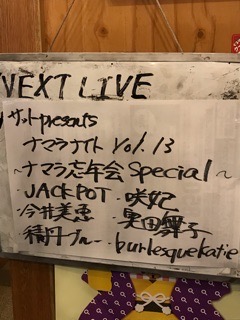 NEXT LIVE
サットpresents
ナマラナイト Vol.13
~ナマラ忘年会Special~
・JACKPOT・咲妃
・今井美恵・黒田舞子
・積丹ブルー・burlesquekatie